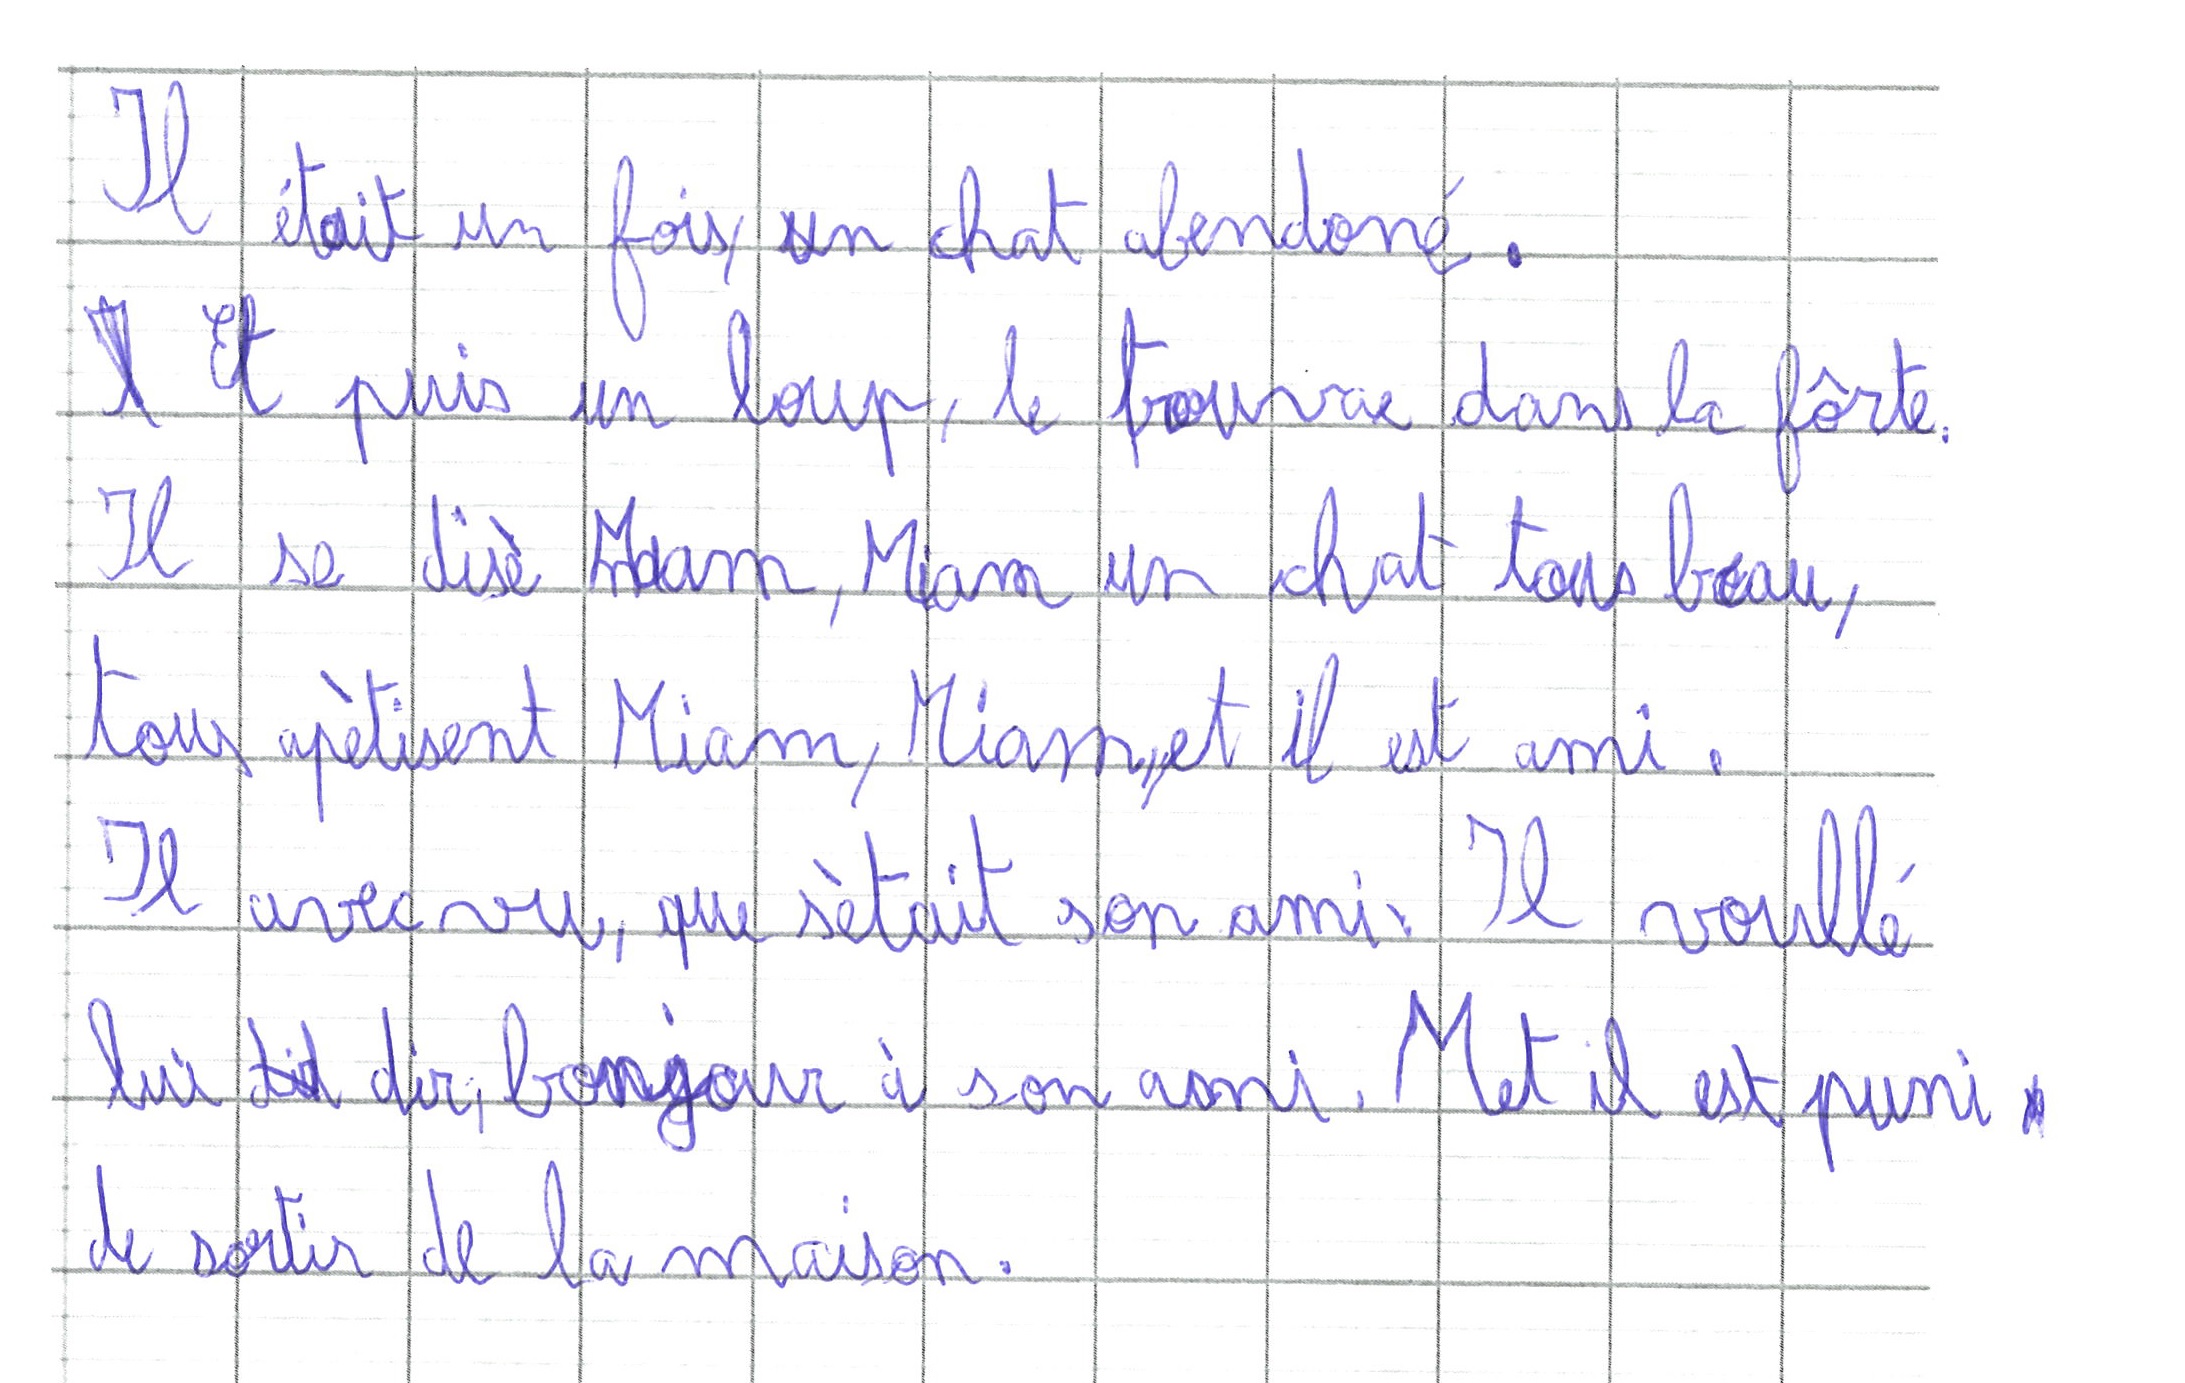 Il était un fois, un chat abendoné.
Et puis un loup, le trouvae dans la fôrte.
Il se disè Miam, Miam un chat tous beau,
tous apètisent Miam, Miam, et il est ami.
Il avec vu, que sètait son ami. Il voullé
lui dir, bonjour à son ami. Met il est puni
de sortir de la maison.